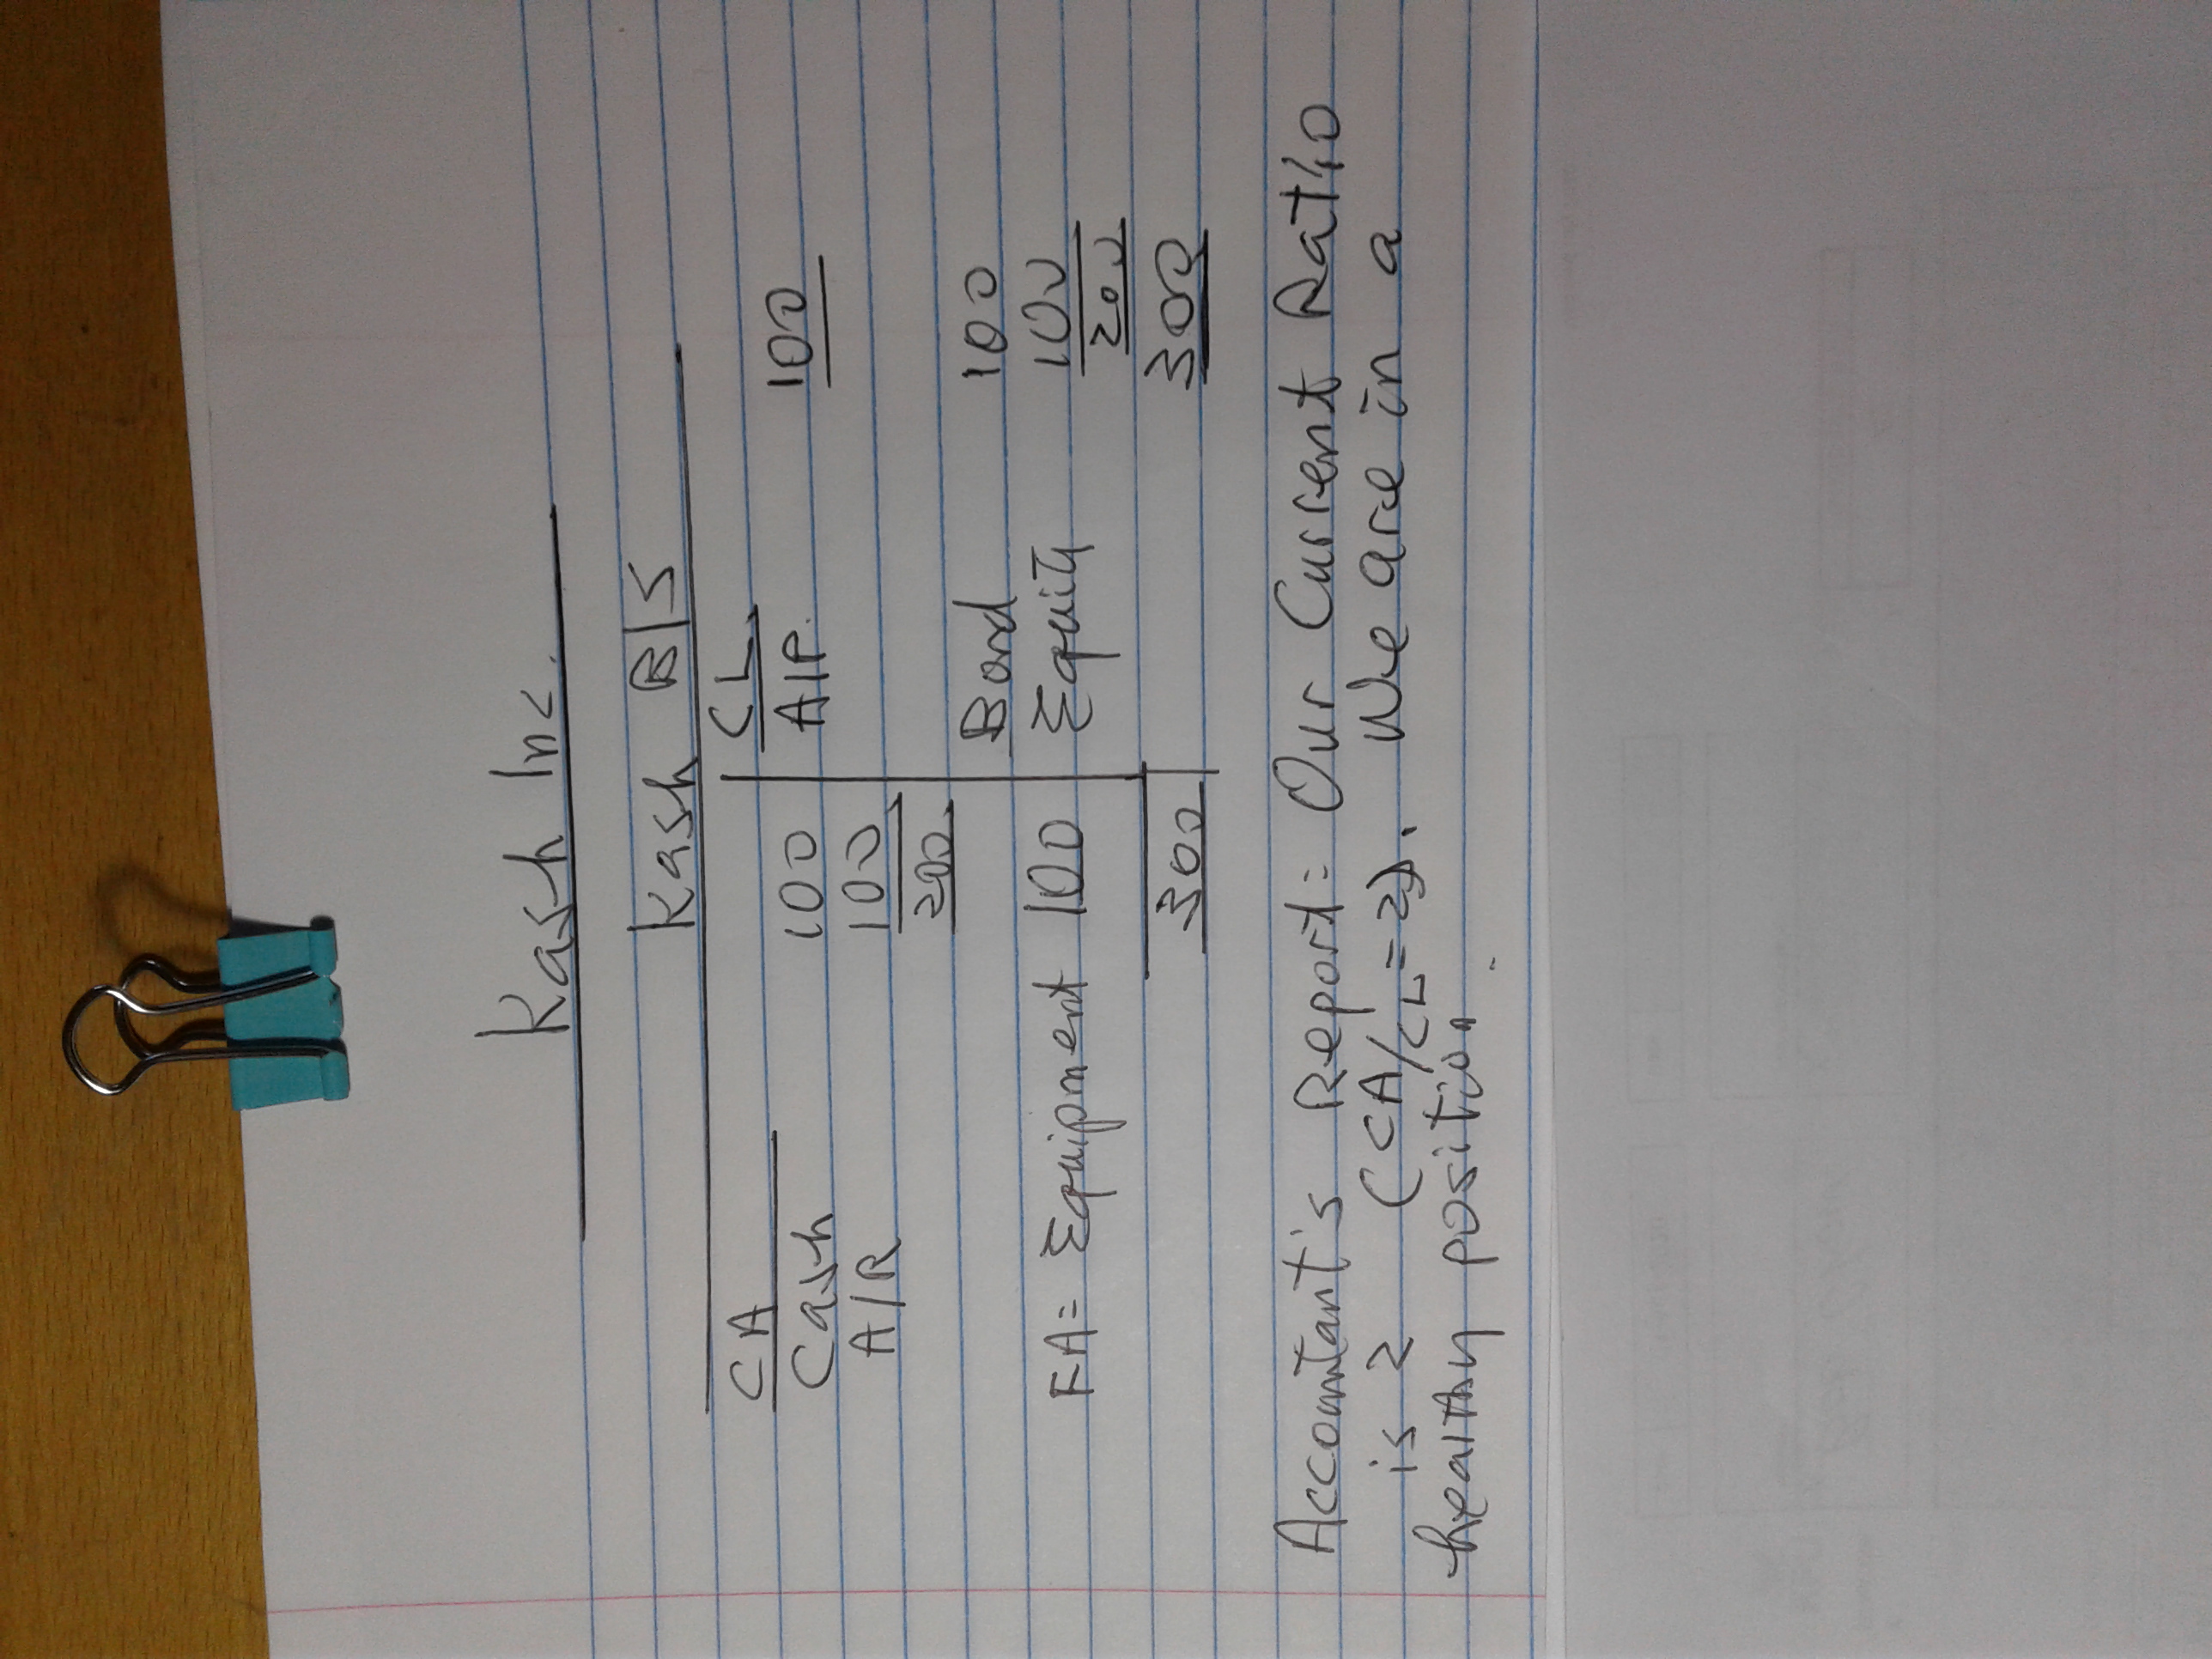 Kash Inc.
Kash B/S
CA CL
Cash 100 A/P. 100
A/R 100
200
Bond 100
FA= Equipment 100 Equity 100
200
300 300
Accountant's Report: Our Current Ratio
is 2 (CA/CL=2). We are in a
healthy position.